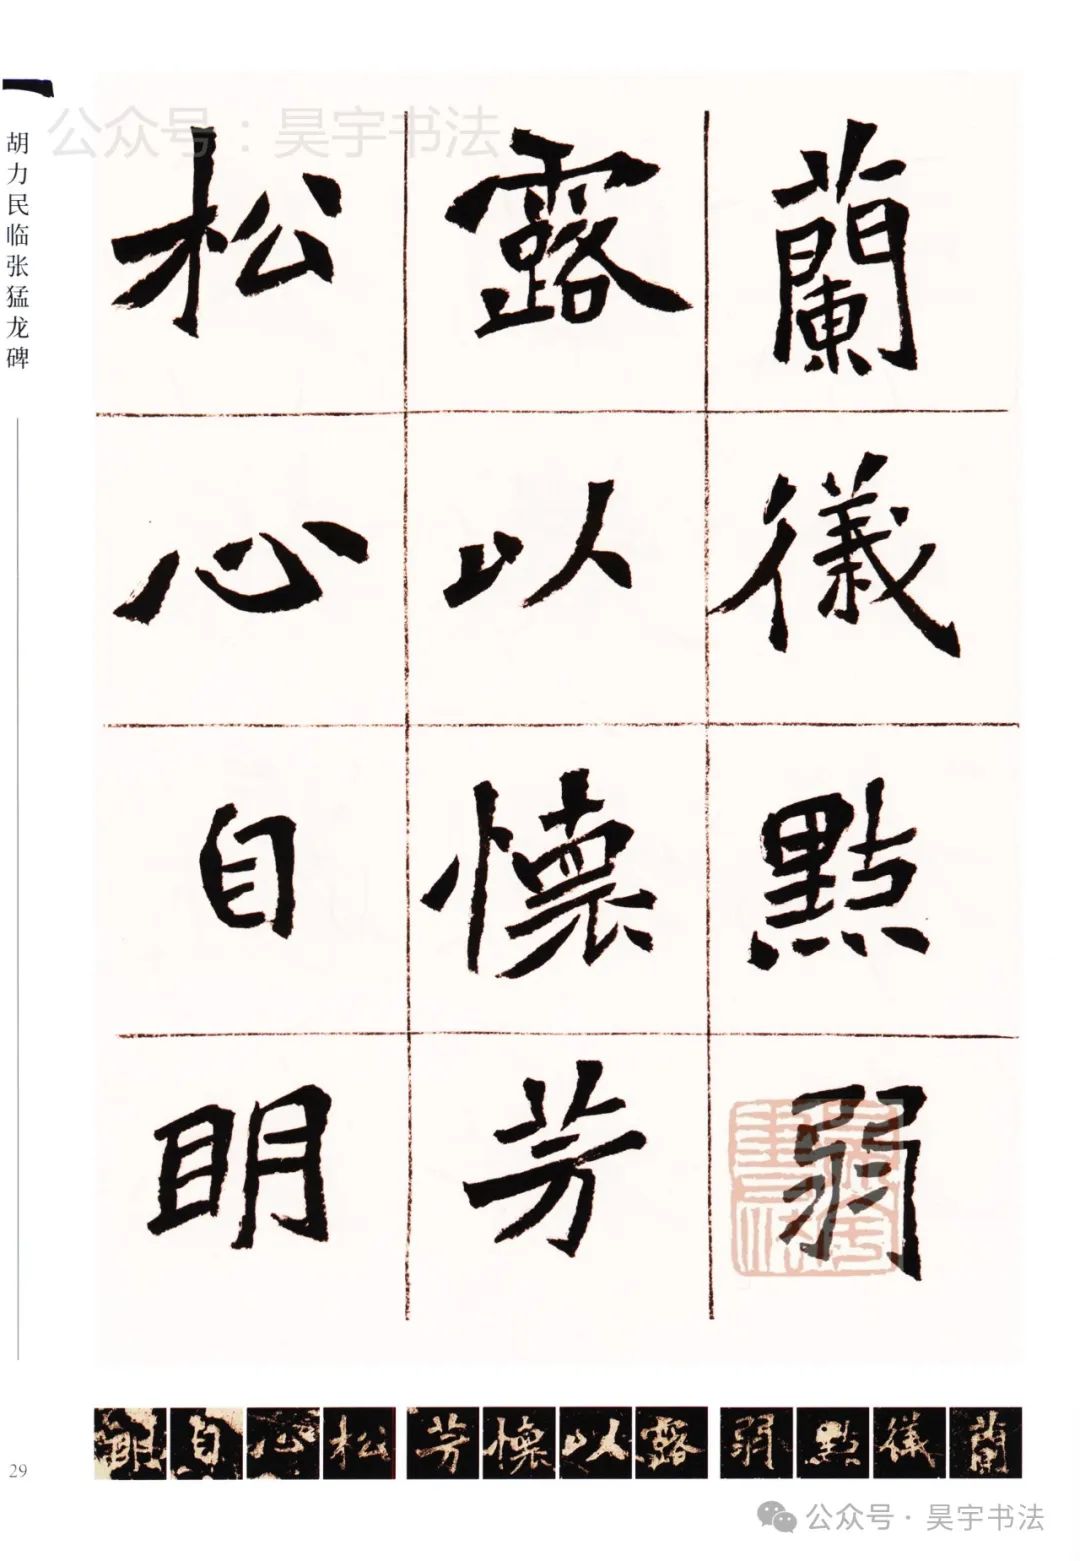 公众号：昊宇书法
胡力民临张猛龙碑
蘭儀點弱
露以懷芳
松心自明
明自心松芳懷以露弱點儀蘭
29
公众号·昊宇书法